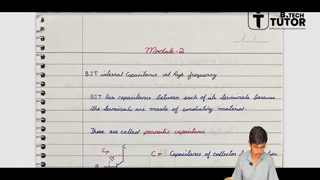 B.TECH
T TUTOR
Module-2
BJT internal Capacitance at High frequency
BJT has capacitance between each of its terminals because
the terminals are made of conducting material.
These are called parasitic capacitance
Cμ : Capacitance of collector
C
Cμ